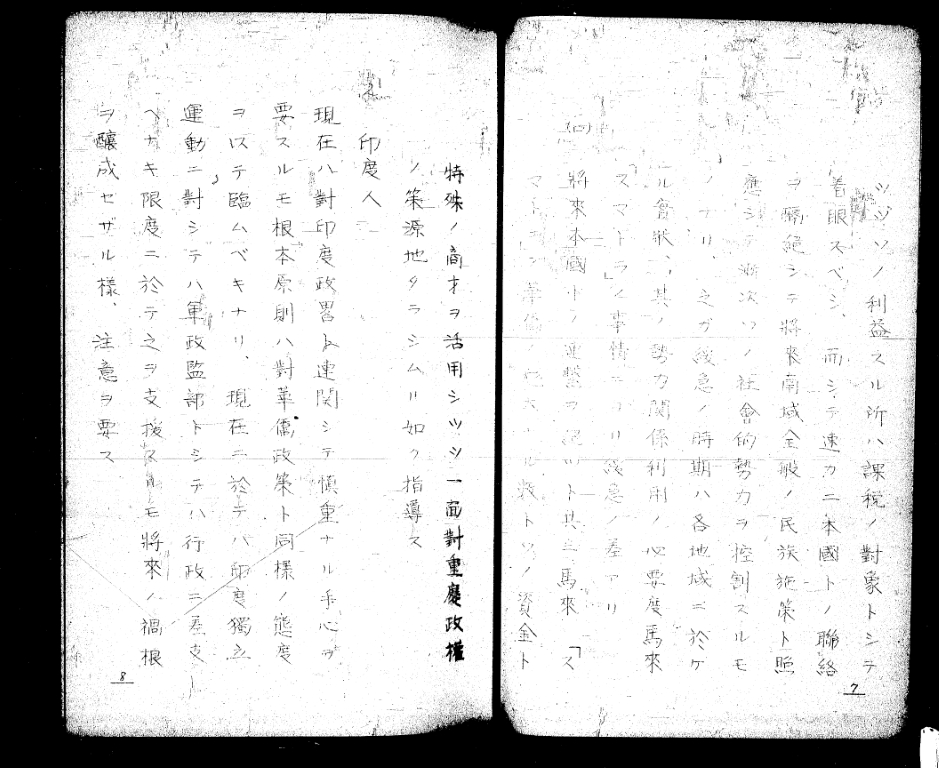 ツヅソノ利益スル所ハ課税ノ對象トシテ
着眼スベシ、而シテ速カニ本國トノ聯絡
ヲ斷絶シテ將來南域全般ノ民族施策ト照
應シテ漸次ソノ社會的勢力ヲ控制スルモ
ノナリ、之ガ緩急ノ時期ハ各地域ニ於ケ
ル會狀、其ノ勢力關係利用ノ必要度馬來
「スマトラ」ノ事情ニヨリ緩急ノ差アリ
將來本國トノ連繫ヲ ト共ニ馬來「ス
マトラ」華僑 トシノ資金ト
7
特殊ノ商才ヲ活用シツツ一面對重慶政權
ノ策源地タラシムル如ク指導ス
印度人
現在ハ對印度政略ト連関シテ慎重ナル手心ヲ
要スルモ根本原則ハ對華僑政策ト同様ノ態度
ヲ以テ臨ムベキナリ、現在ニ於テハ印度獨立
運動ニ對シテハ軍政監部トシテハ行政ニ差支
ヘナキ限度ニ於テ之ヲ支援スルモ將來ノ禍根
ヲ釀成セザル様、注意ヲ要ス
8